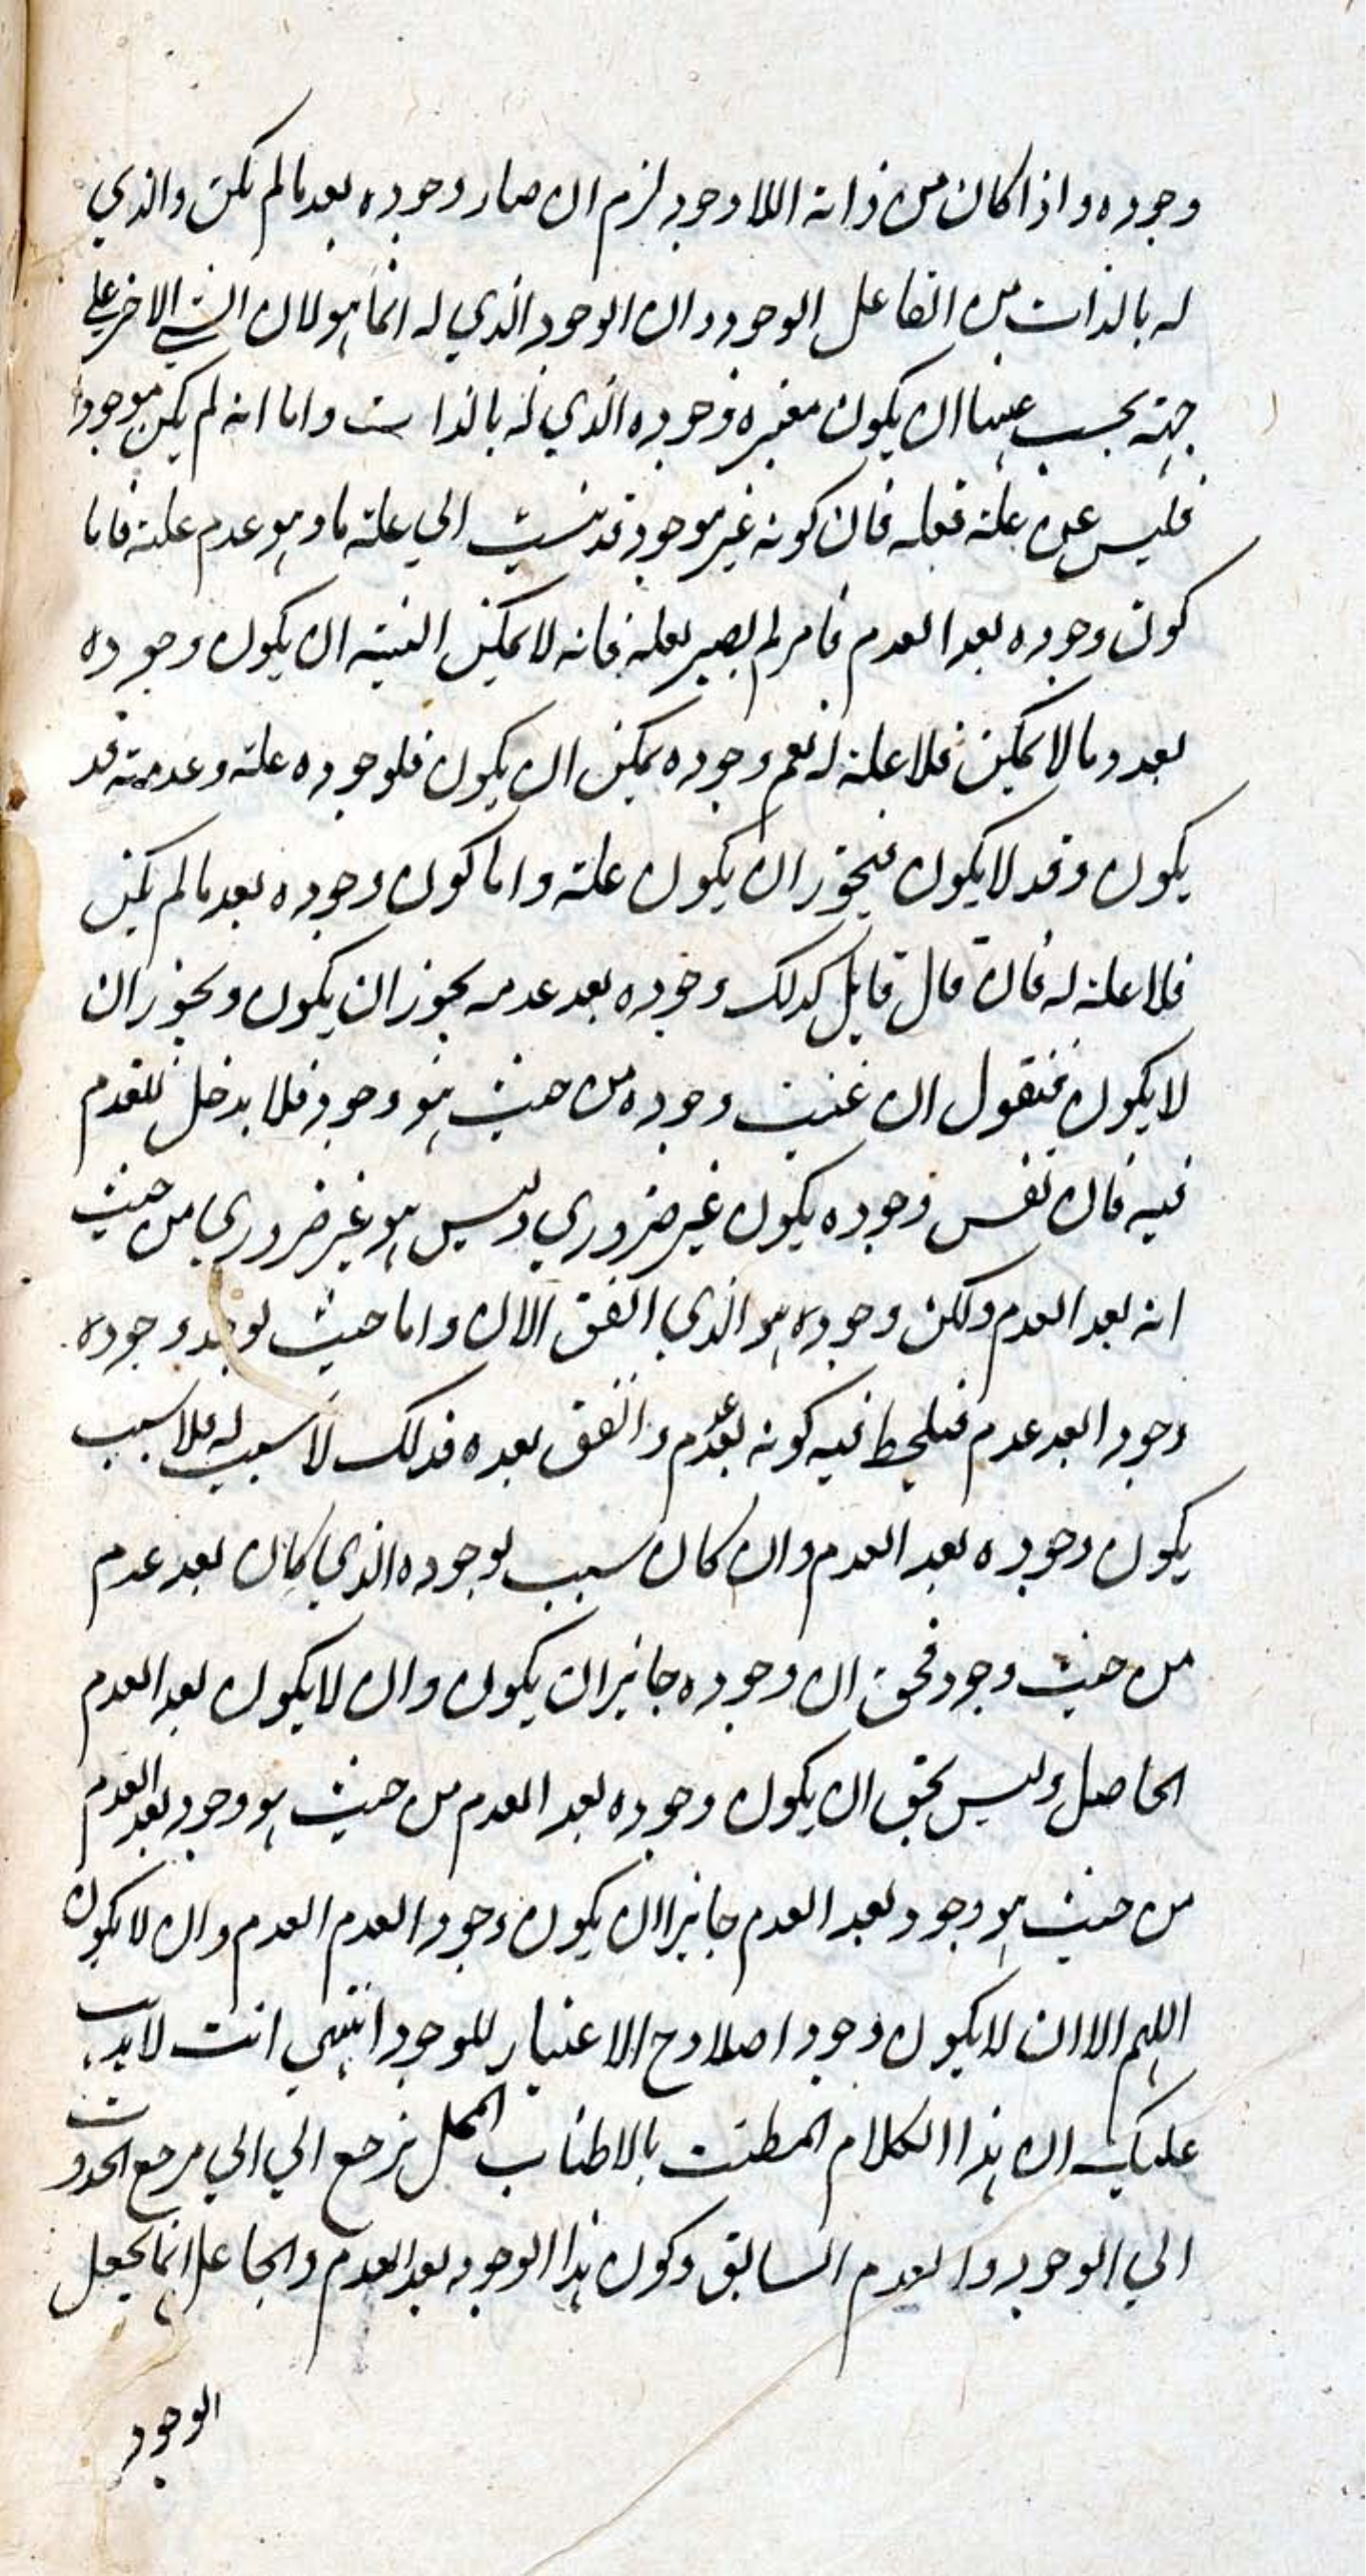 وجوده واذا كان من ذاته اللا وجود لزم ان صار وجوده بعد ما لم يكن والذي
له بالذات من الفاعل الوجود وان الوجود الذي له انما هو لان الشي الاخر علي
جهة يجب عنها ان يكون مغيره وجوده الذي له بالذات واما انه لم يكن موجودا
فليس عن علة فعله فان كونه غير موجود قد ينسب الي علة ما وهو عدم علته فاما
كون وجوده بعد العدم فامر لم يصير بعلة فانه لا يمكن البتة ان يكون وجوده
بعد وما لا يمكن فلا علة له نعم وجوده يمكن ان يكون فلوجوده علة وعدمته قد
يكون وقد لا يكون فيجوز ان يكون علة واما كون وجوده بعد ما لم يكن
فلا علة له فان قال قايل كذلك وجوده بعد عدمه يجوز ان يكون ويجوز ان
لا يكون فنقول ان عنيت وجوده من حيث هو وجود فلا يدخل للعدم
فيه فان نفس وجوده يكون غير ضروري وليس هو غير ضروري من حيث
انه بعد العدم ولكن وجوده هو الذي اتفق الان واما حيث يوخذ وجوده
وجودا بعد عدم فيلحظ فيه كونه بعد عدم واتفق بعده فذلك لا سبب له فلا سبب
يكون وجوده بعد العدم وان كان سبب لوجوده الذي كان بعد عدم
من حيث وجود فحق ان وجوده جايز ان يكون وان لا يكون بعد العدم
الحاصل وليس بحق ان يكون وجوده بعد العدم من حيث هو وجود بعد العدم
من حيث هو وجود بعد العدم جايزا ان يكون وجود العدم العدم وان لا يكون
اللهم الا ان لا يكون وجود اصلا وح الاعتبار للوجود انتهي انت لا يذهب
عليك ان هذا الكلام المطنب بالاطناب الممل يرجع الي الي مرجع الحدوث
الي الوجود والعدم السابق وكون هذا الوجود بعد العدم والجاعل انما يجعل
الوجود